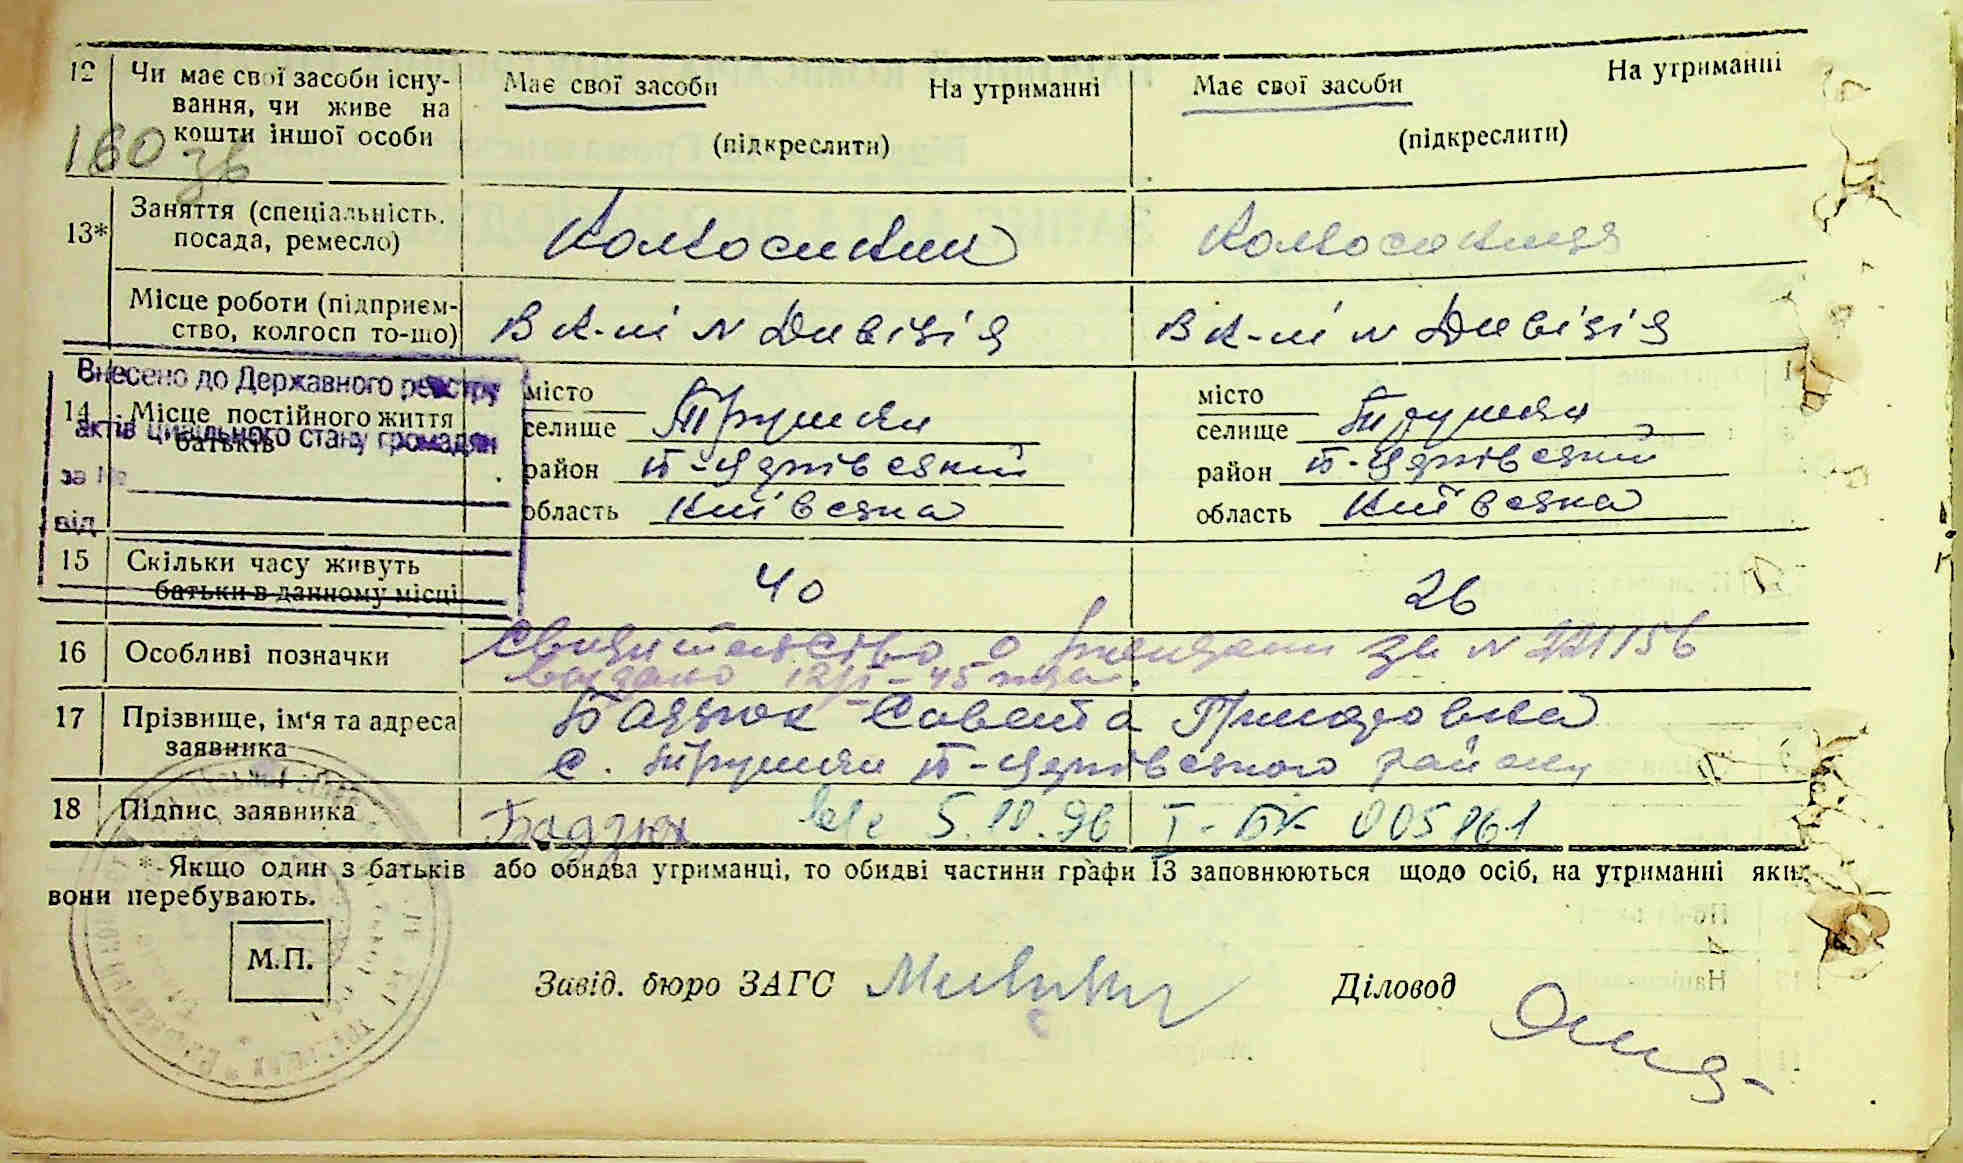 12 Чи має свої засоби існу-
вання, чи живе на
кошти іншої особи
Має свої засоби На утриманні
(підкреслити)
Має свої засоби На утриманні
(підкреслити)
160 зв
13* Заняття (спеціальність.
посада, ремесло)
Колгоспник
Колгоспниця
Місце роботи (підприєм-
ство, колгосп то-що)
В к-пі Дивізія
В к-пі Дивізія
Внесено до Державного реєстру
актів цивільного стану громадян
за №
від
14 Місце постійного життя
батьків
місто
селище Трушки
район Б-Церківський
область Київська
місто
селище Трушки
район Б-Церківський
область Київська
15 Скільки часу живуть
батьки в данному місці
40
26
16 Особливі позначки
Свидетельство о рождении за N 221156
17 Прізвище, ім'я та адреса
заявника
Бадзюк
с. Трушки Б-Церківського району
18 Підпис заявника
Бадзюх 5.10.96 І-БК 005161
*-Якщо один з батьків або обидва утриманці, то обидві частини графи 13 заповнюються щодо осіб, на утриманні яких
вони перебувають.
М.П.
Завід. бюро ЗАГС
Діловод